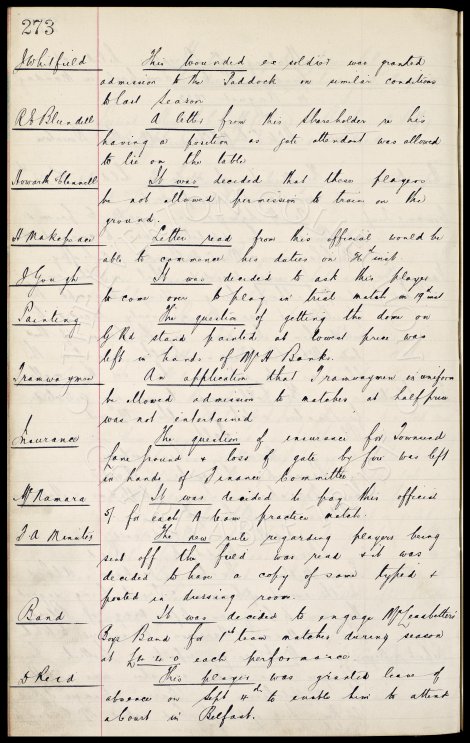 273
J Whitfield This wounded ex soldier was granted
admission to the Paddock on similar conditions
to last season
R A Blundell A letter from this shareholder re his
having a position as gate attendant was allowed
to lie on the table
Howarth & It was decided that these players
be not allowed permission to train on the
ground.
H Makepeace Letter read from this official would be
able to commence his duties on inst
J Gough It was decided to ask this player
to come over to play in trial match on 19th inst
Painting The question of getting the done on
G Rd stand painted at lowest price was
left in hands of Mr H Banks.
Tramwaymen An application that Tramwaymen in uniform
be allowed admission to matches at half price
was not entertained
Insurance The question of insurance for Townend
Lane Ground & loss of gate by fire was left
in hands of Finance Committee
McNamara It was decided to pay this official
5/- for each A team practice match.
F A Minutes The new rule regarding players being
sent off the field was read & it was
decided to have a copy of same typed &
posted in dressing room.
Band It was decided to engage
Boys Band for 1st team matches during season
at £4 4 0 each performance.
D Reid This player was granted leave of
absence on Sept 4th to enable him to attend
a Court in Belfast.